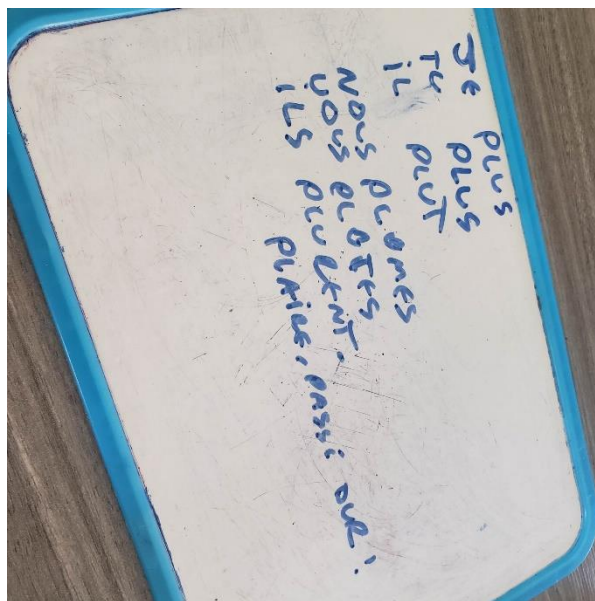 JE PLUS
TU PLUS
IL PLUT
NOUS PLUMES
VOUS PLUTES
ILS PLURENT.
PLAIRE, PASSÉ DUR!